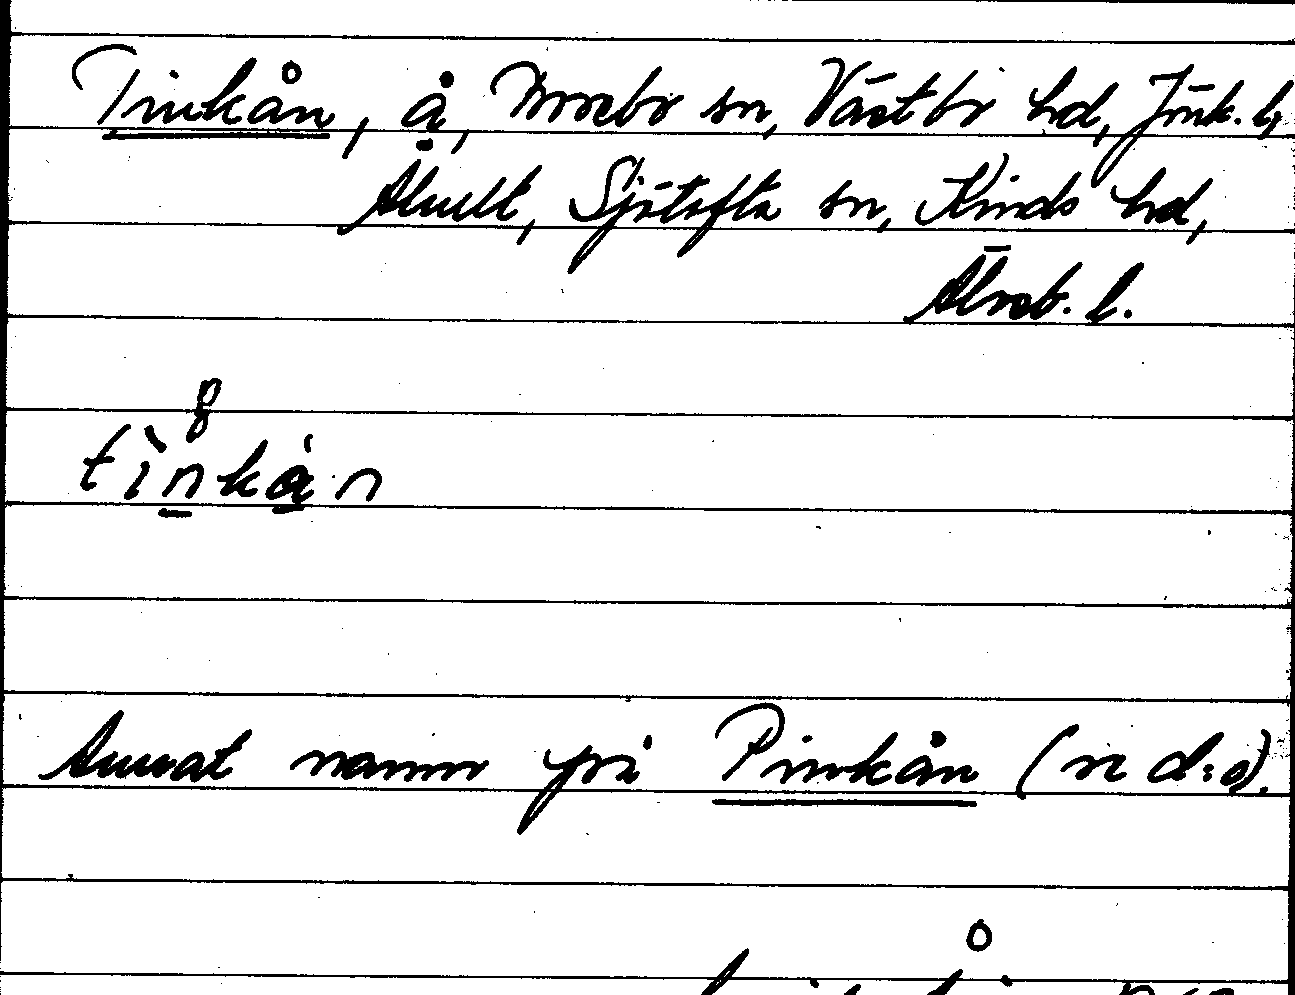 Tinkån, å, Mosebo sn, Västbo hd, Jönk. l,
Älvult, Sjötofta sn, Kinds hd,
Älvsb. l.
tìnkån
Annat namn på Pinkån (se d:o).